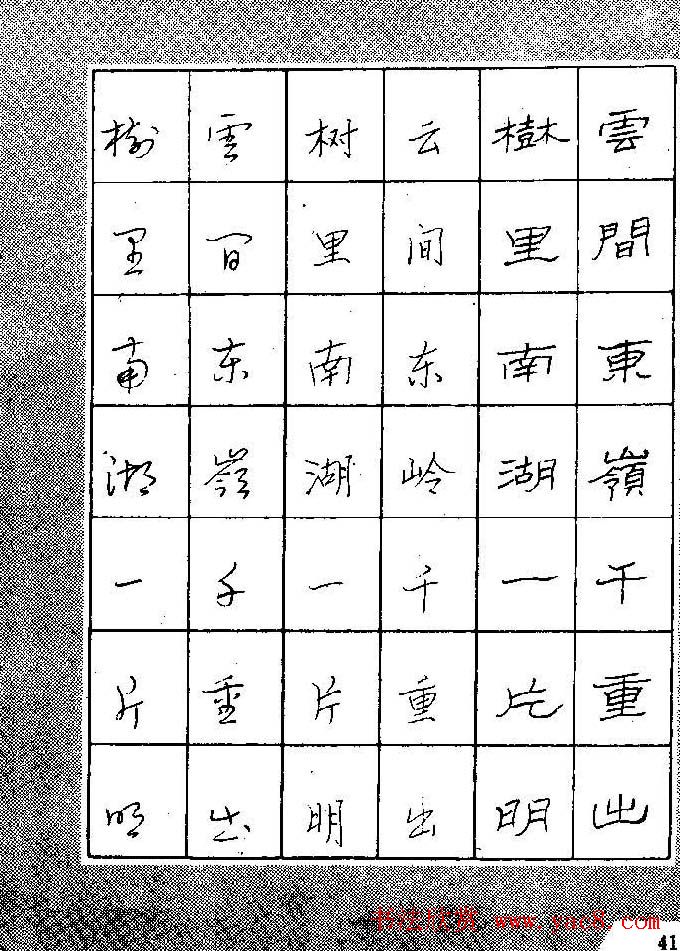 雲間東嶺千重出
樹里南湖一片明
云间东岭千重出
树里南湖一片明
雲间东嶺千重出
树里南湖一片明
书法欣赏 www.yac8.com
41